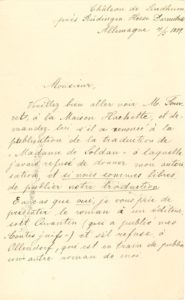 Château de Lindheim
près Büdingen Hesse
Allemagne 7/5 1889
Monsieur,
Veuillez bien aller voir M.
à la Maison Hachette, et de-
mandez lui s'il a renoncé à la
publication de la traduction de
„Madame de Soldan" à laquelle
j'avais refusé de donner mon autori-
sation, et si nous sommes libres
de publier notre traduction.
En cas que oui, je vous prie de
présenter le roman à un éditeur
soit Quantin (qui a publié mes
Contes juifs) et s'il refuse à
Ollendorf, qui est en train de publier
un autre roman de moi